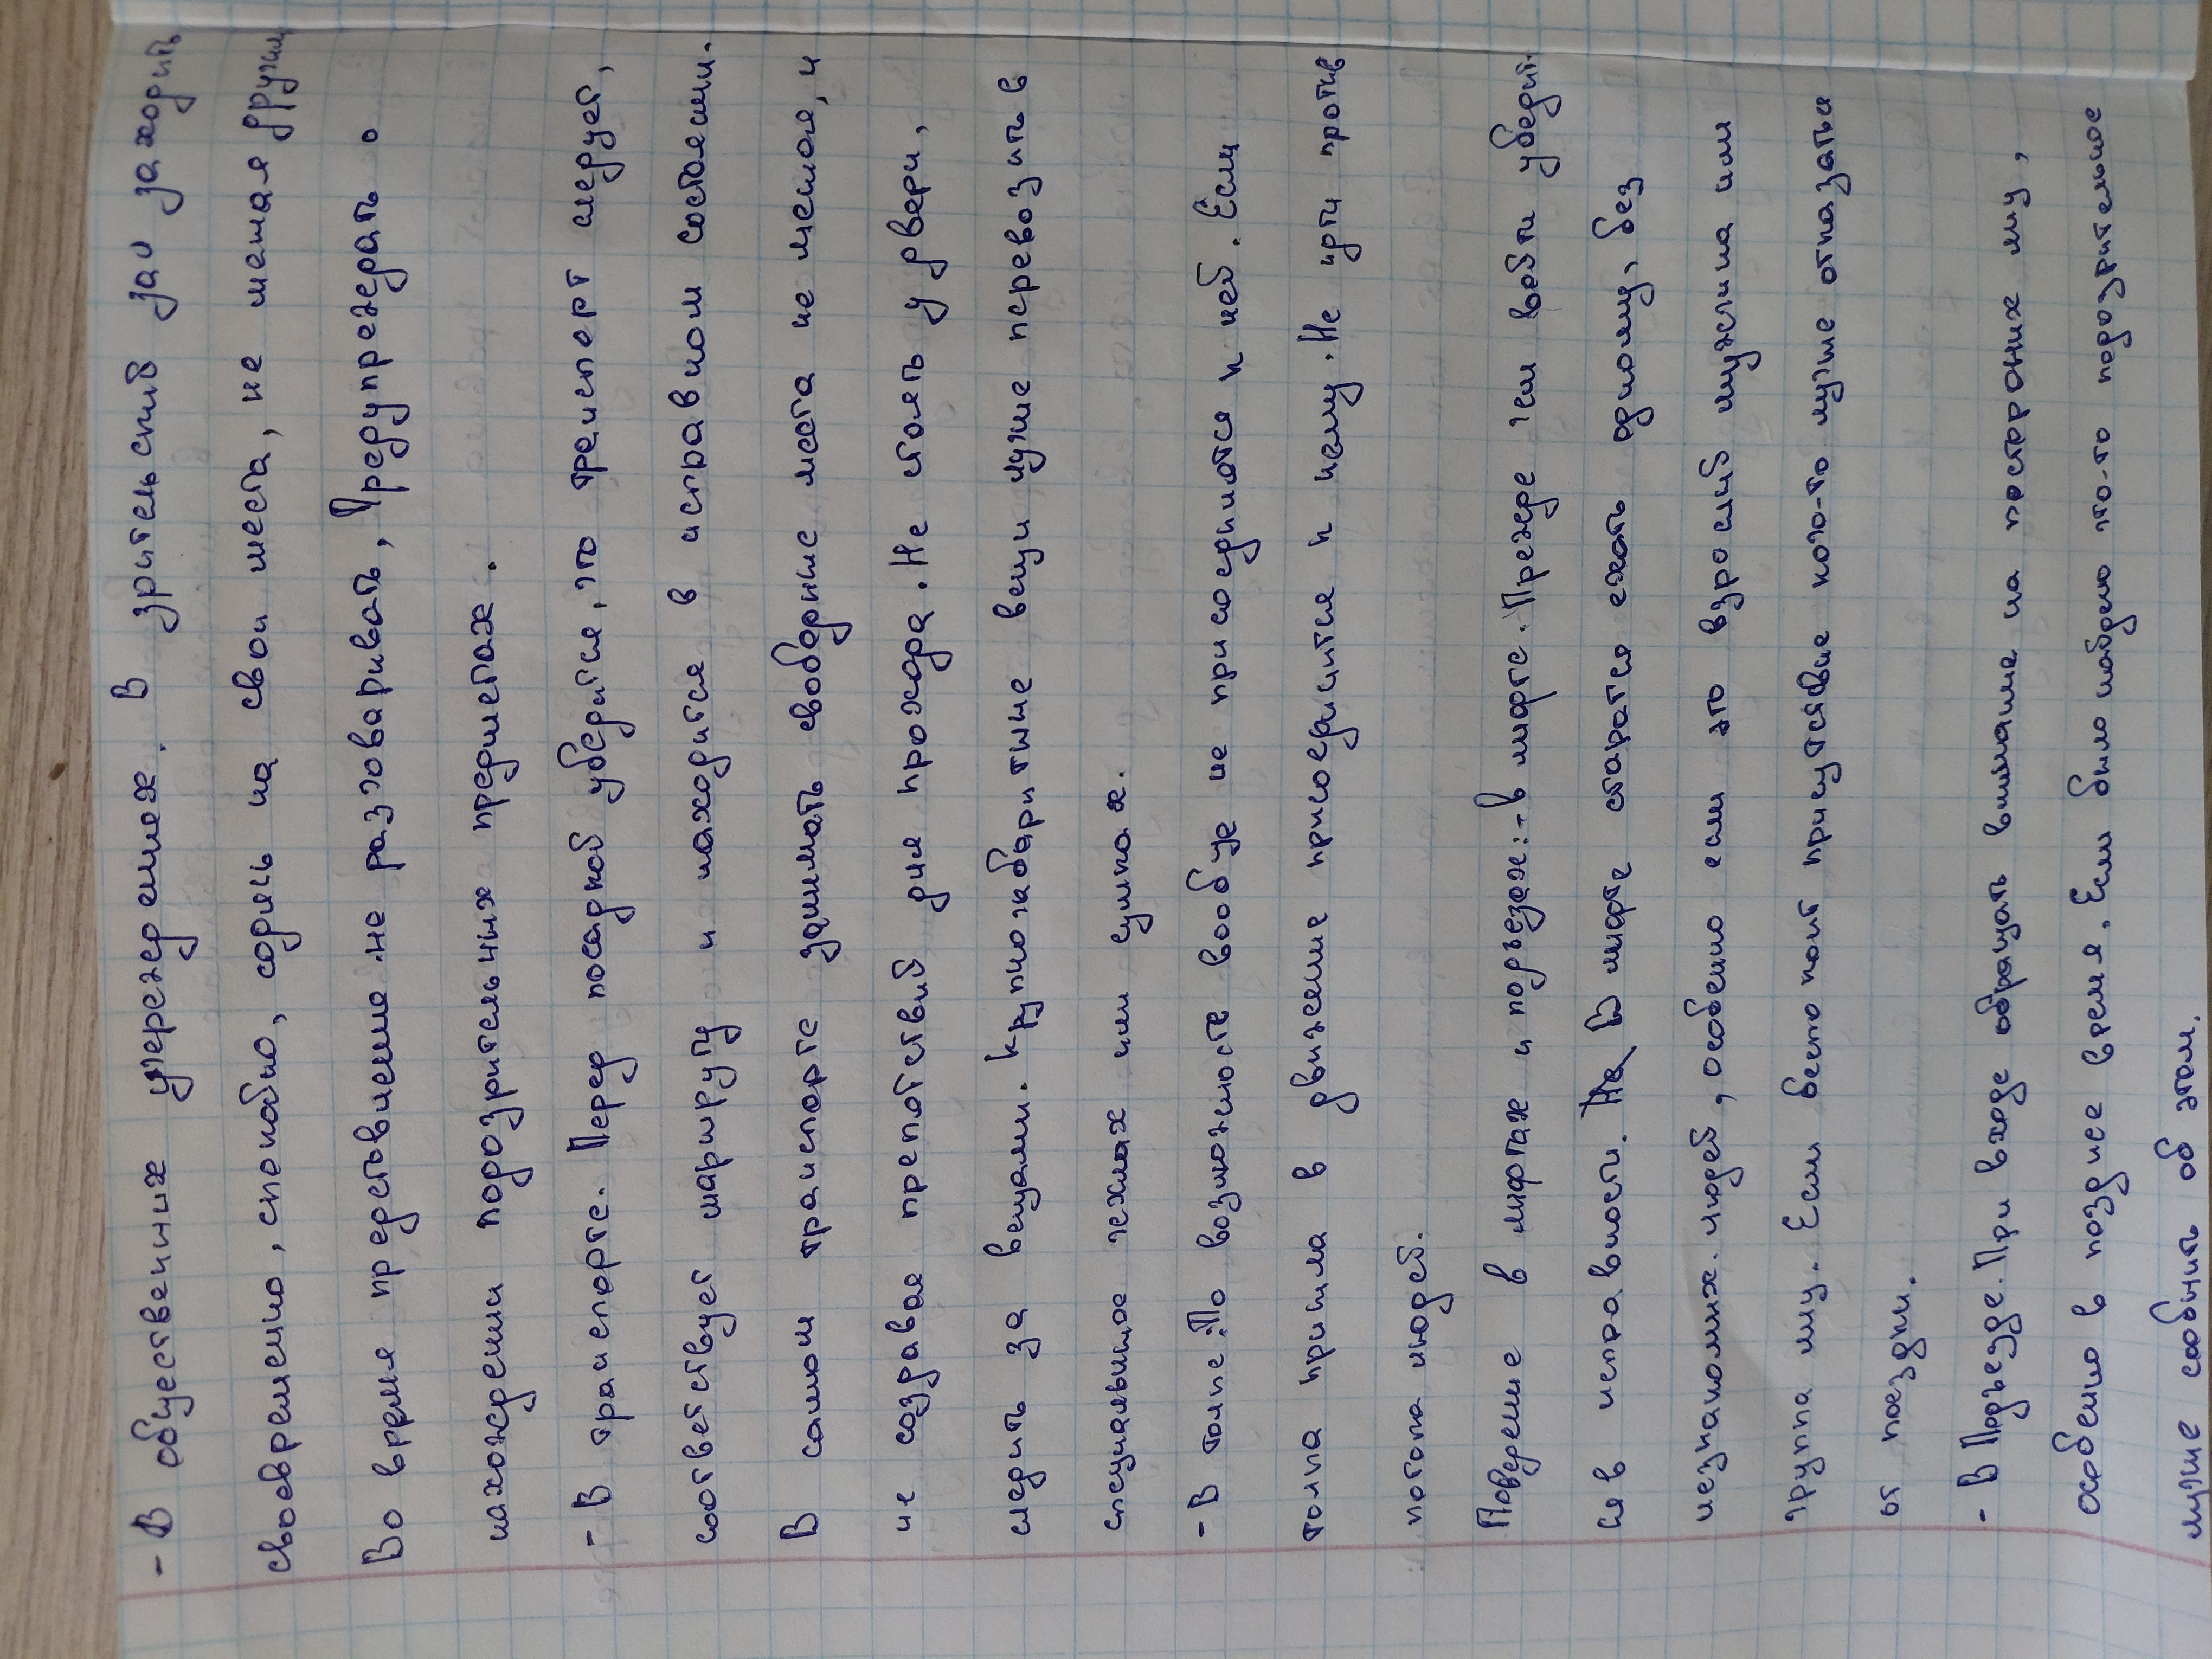 - В общественних учереждениех. В зрительский зал заходить
своевременно, спокойно, садись на свои места, не мешая другим
Во время представление не разговаривать, Предупреждать о
нахождении подозрительных предметах.
- В транспорте. Перед посадкой убедится, что транспорт следует,
соответствует маршруту и находится в исправном состоянии.
В самом транспорте занимать свободные места не мешая, и
не создавая препятствий для прохода. Не стоять у двери,
следить за вещами. Крупногабаритные вещи лучше перевозить в
специальных чехлах или сумках.
- В толпе: По возможности вообще не присоединятся к ней. Если
толпа пришла в движение присоединится к нему. Не идти против
потока людей.
Поведение в лифтах и подъездах: - В лифте. Прежде чем войти убедит.
ся в исправности. В лифте старатся ехать одному, без
незнакомих людей, особенно если это взрослый мужчина или
группа лиц. Если беспокоит присутствие кого-то лучше отказатся
от поездки.
- В Подъезде. При входе обращать внимание на посторонних лиц,
особенно в позднее время. Если было найдено что-то подозрительное
лучше сообщить об этом.